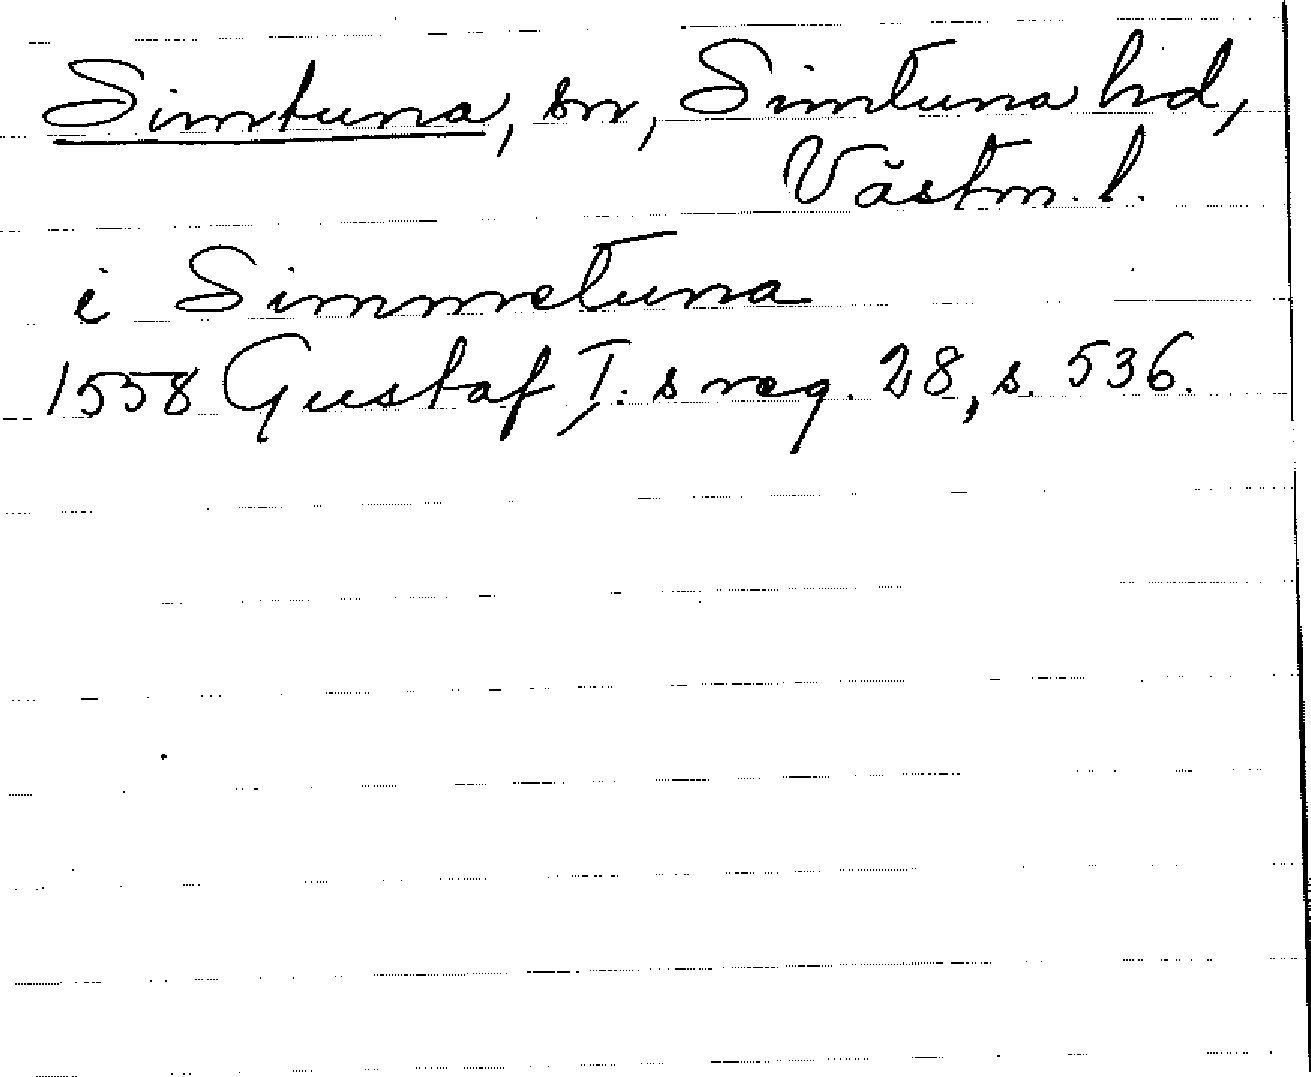 Simtuna, sn, Simtuna hd,
Västm. l.
i Simmetuna
1558 Gustaf I:s reg. 28, s. 536.